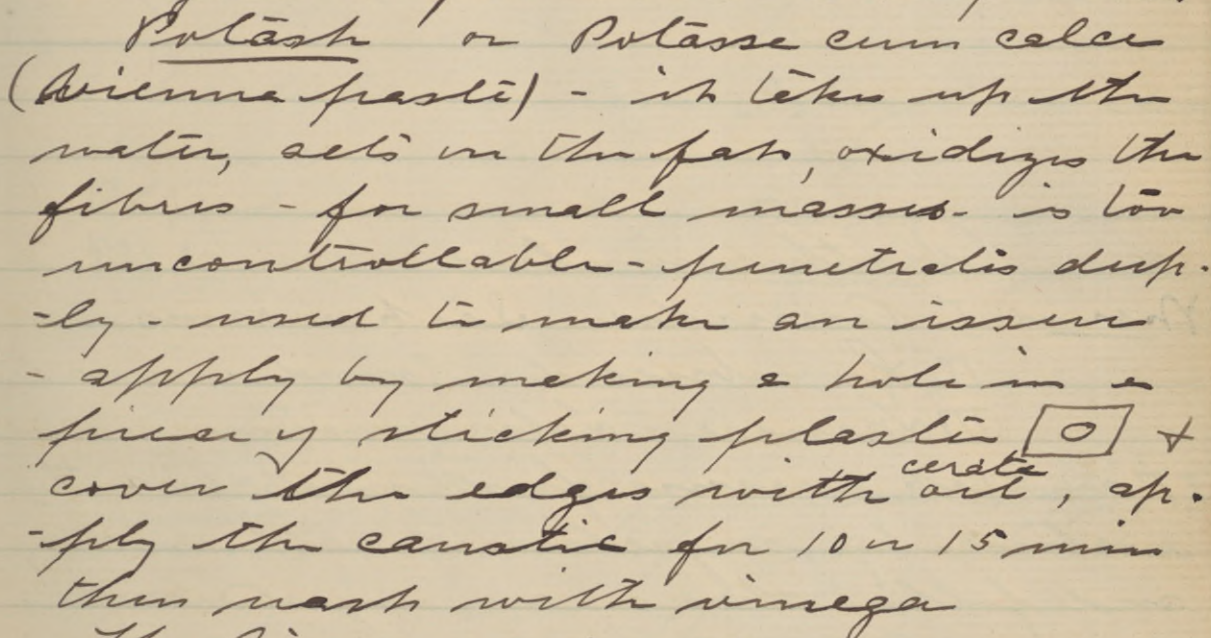 Potash or Potasse cum calce
(Vienna paste) - it takes up the
water, acts on the fat, oxidizes the
fibres - for small masses - is too
uncontrollable - penetrates deep-
-ly - used to make an issue
- apply by making a hole in a
piece of sticking plaster +
cover the edges with oil cerate, ap-
-ply the caustic for 10 or 15 min
then wash with vinegar